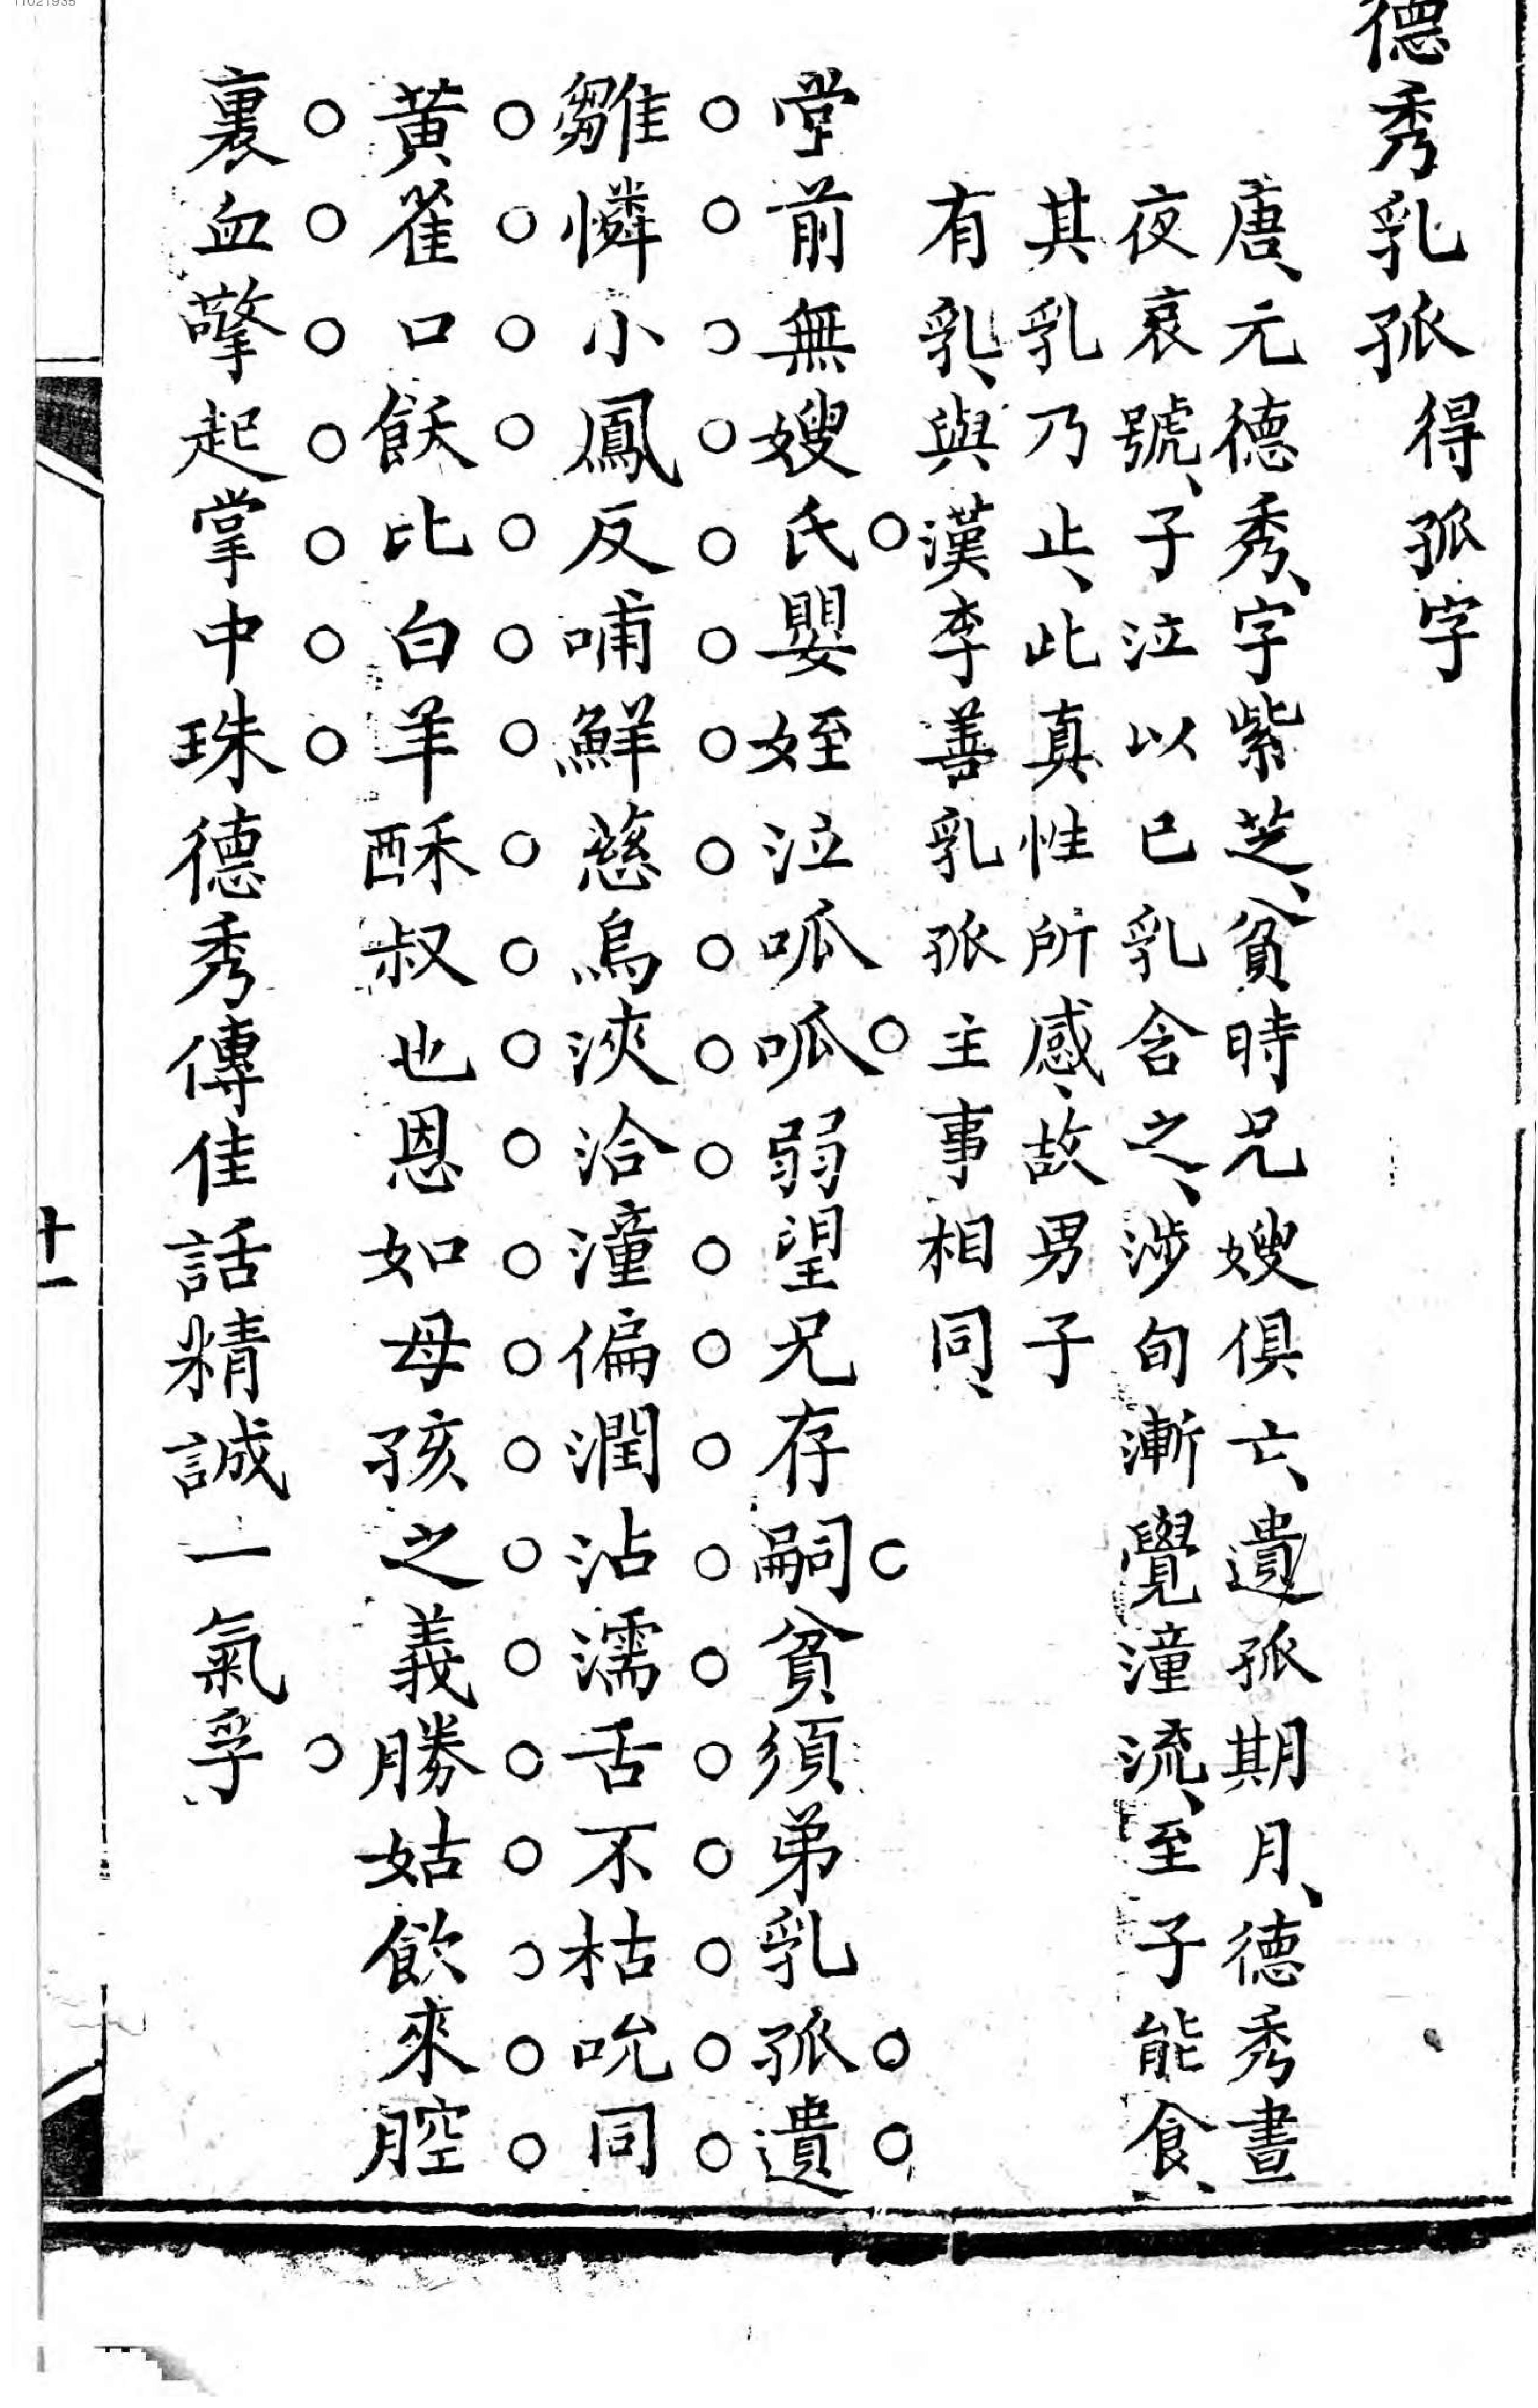 德秀乳孤 得孤字
唐、元德秀、字紫芝、貧時兄嫂俱亡、遺孤期月、德秀晝
夜哀號、子泣以已乳含之、涉旬漸覺湩流、至子能食、
其乳乃止、此真性所感、故男子
有乳、與漢李善乳孤主事相同、
堂前無嫂氏嬰姪泣呱呱弱望兄存嗣貧須弟乳孤遺
雛憐小鳳反哺鮮慈烏浹洽湩偏潤沾濡舌不枯吮同
黃雀口飫比白羊酥叔也恩如母孩之義勝姑飲來腔
裏血擎起掌中珠德秀傳佳話精誠一氣孚
十一
11021935